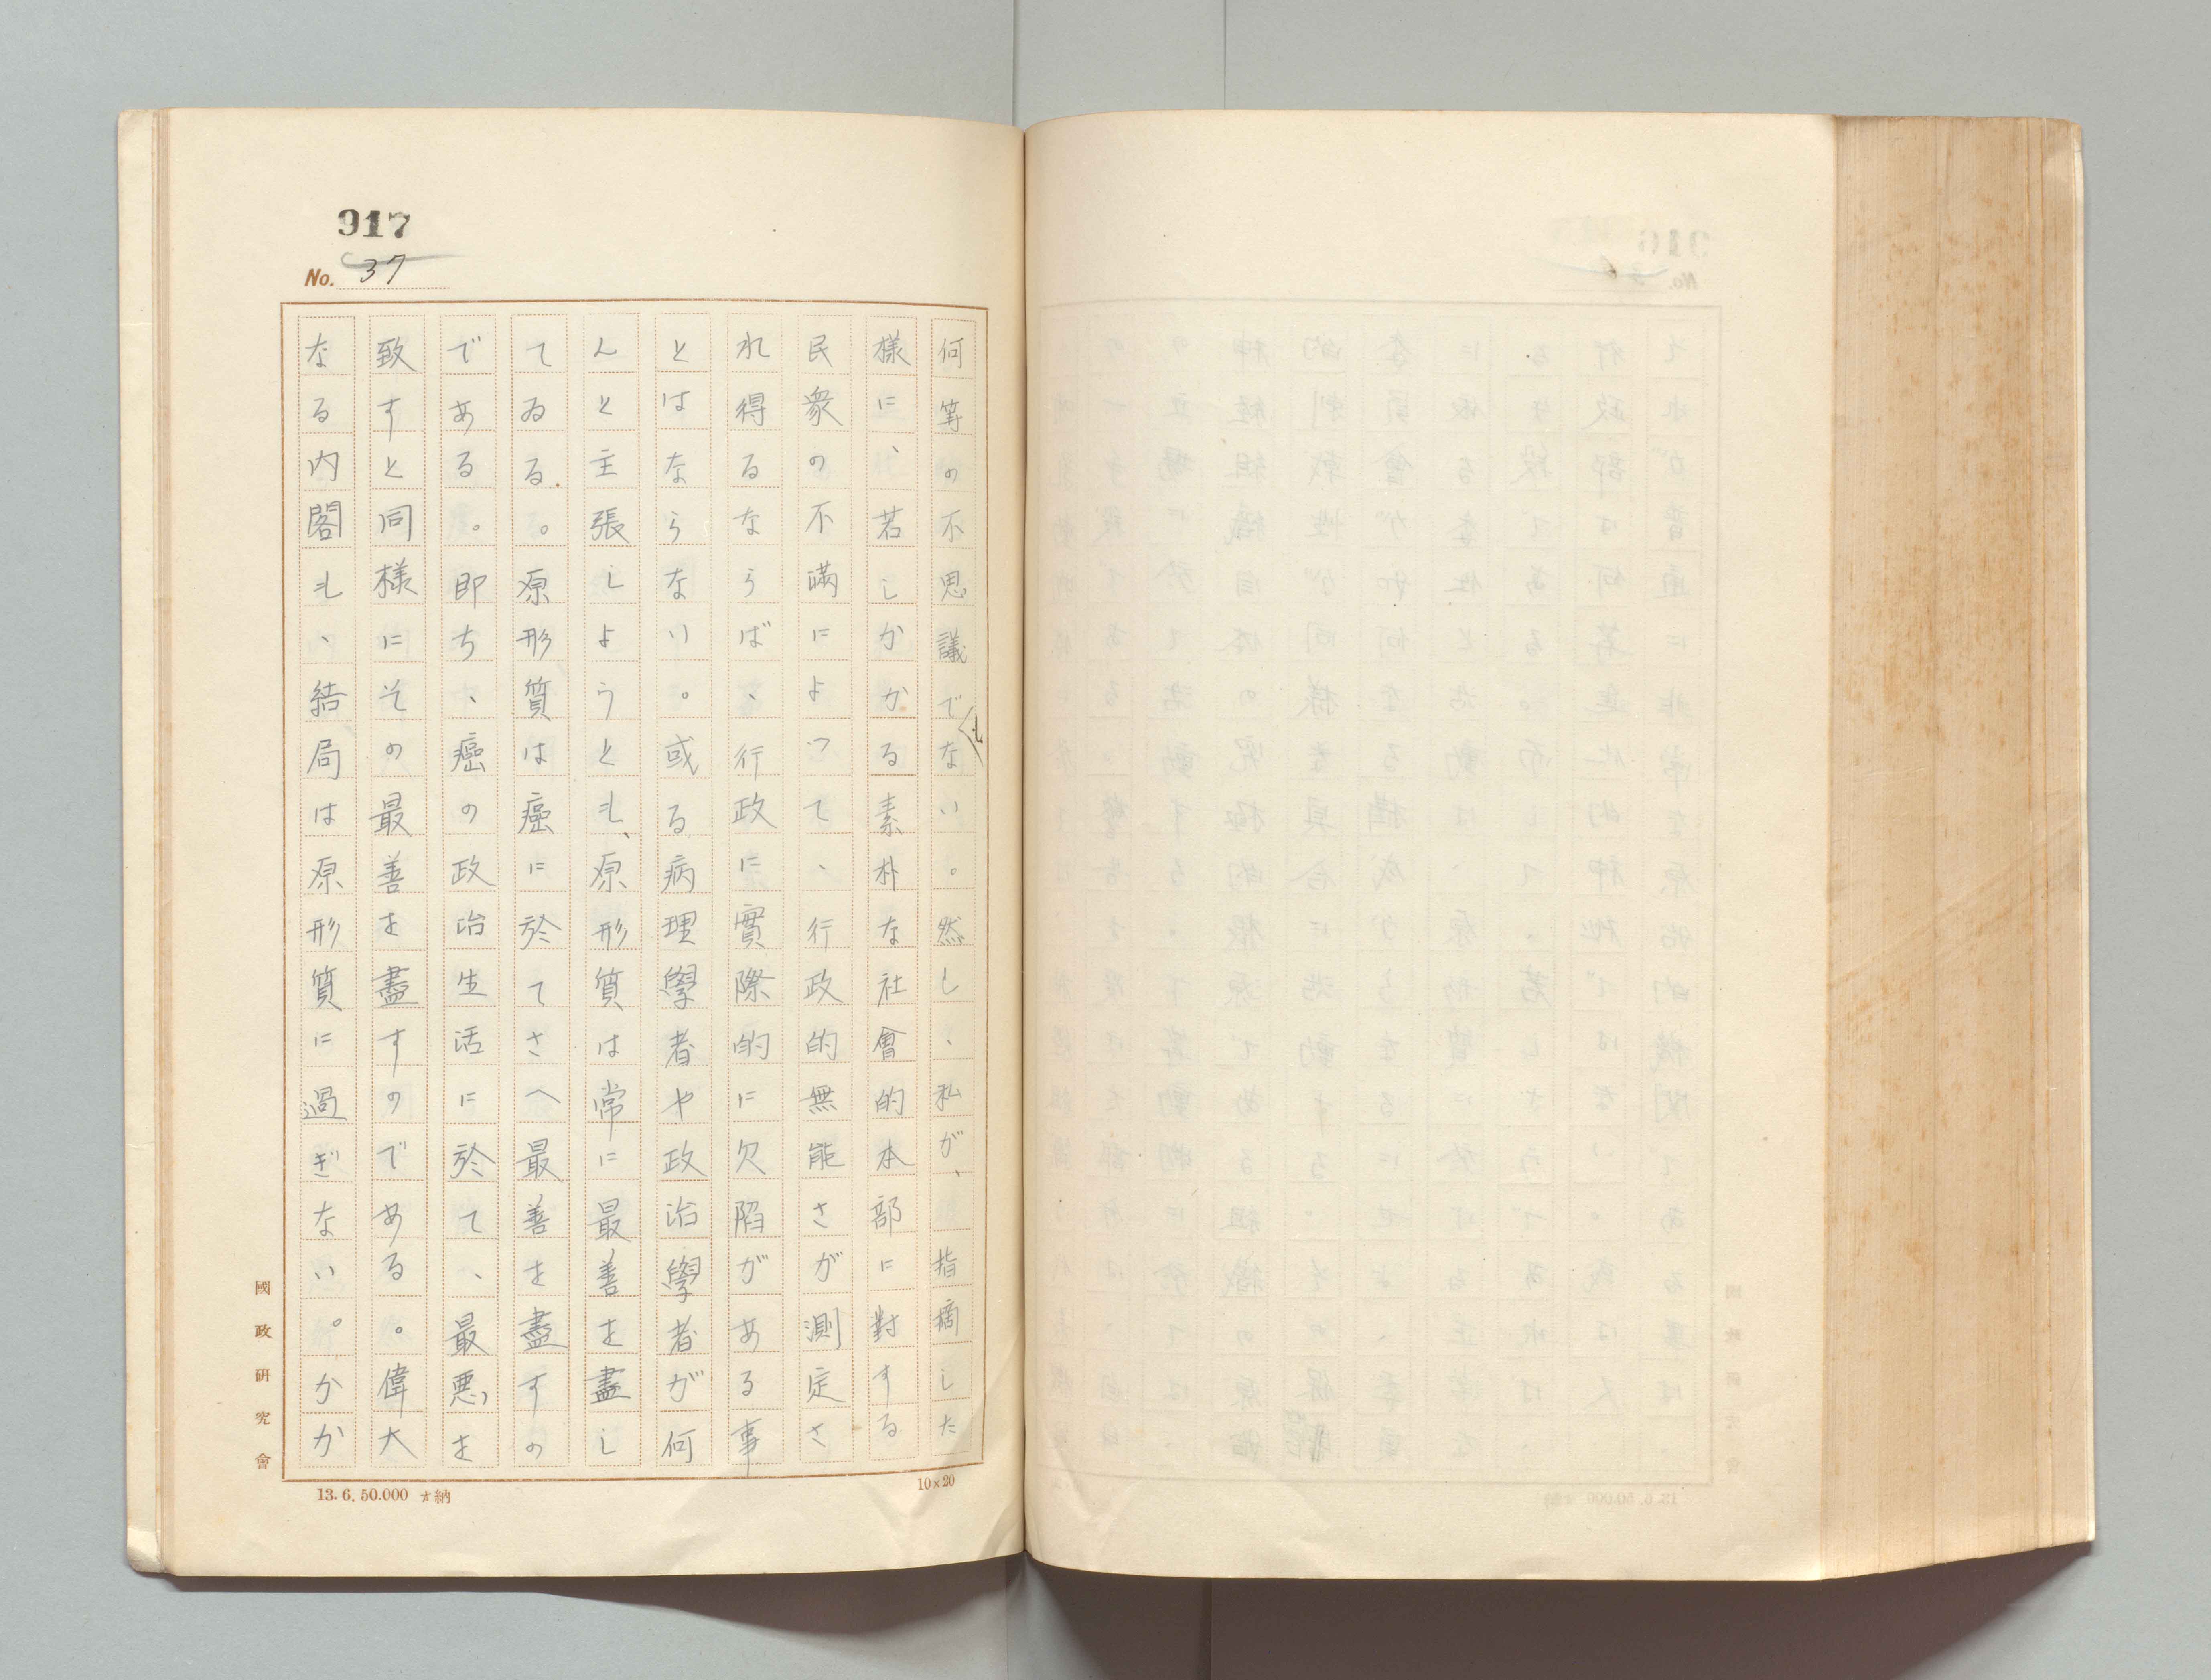 917
No. 37
何等の不思議でもない。然し、私が、指摘した
様に、若しかかる素朴な社會的本部に對する
民衆の不満によつて、行政的無能さが測定さ
れ得るならば、行政に實際的に欠陥がある事
とはならない。或る病理學者や政治學者が何
んと主張しようとも、原形質は常に最善を盡し
てゐる。原形質は癌に於てさへ最善を盡すの
である。即ち、癌の政治生活に於て、最悪を
致すと同様にその最善を盡すのである。偉大
なる内閣も、結局は原形質に過ぎない。かか
國政研究會
13.6.50.000 納
10×20